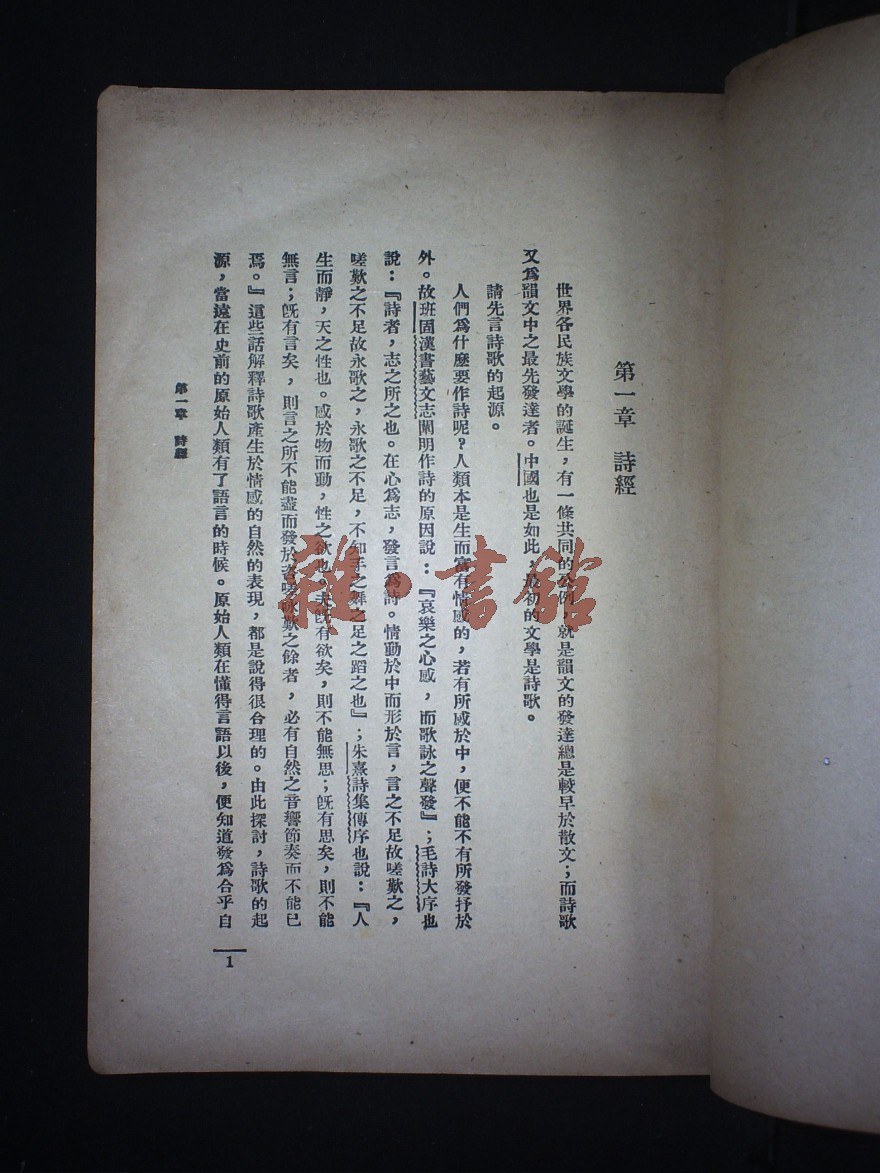 第一章　詩經
世界各民族文學的誕生，有一條共同的公例，就是韻文的發達總是較早於散文；而詩歌
又爲韻文中之最先發達者。中國也是如此，最初的文學是詩歌。
請先言詩歌的起源。
人們爲什麼要作詩呢？人類本是生而富有情感的，若有所感於中，便不能不有所發抒於
外。故班固漢書藝文志闡明作詩的原因說：『哀樂之心感，而歌詠之聲發』；毛詩大序也
說：『詩者，志之所之也。在心爲志，發言爲詩。情動於中而形於言，言之不足故嗟歎之，
嗟歎之不足故永歌之，永歌之不足，不知手之舞之足之蹈之也』；朱熹詩集傳序也說：『人
生而靜，天之性也。感於物而動，性之欲也。夫既有欲矣，則不能無思；既有思矣，則不能
無言；既有言矣，則言之所不能盡而發於咨嗟詠歎之餘者，必有自然之音響節奏而不能已
焉。』這些話解釋詩歌產生於情感的自然的表現，都是說得很合理的。由此探討，詩歌的起
源，當遠在史前的原始人類有了語言的時候。原始人類在懂得言語以後，便知道發爲合乎自
第一章　詩經
1
雜·書館